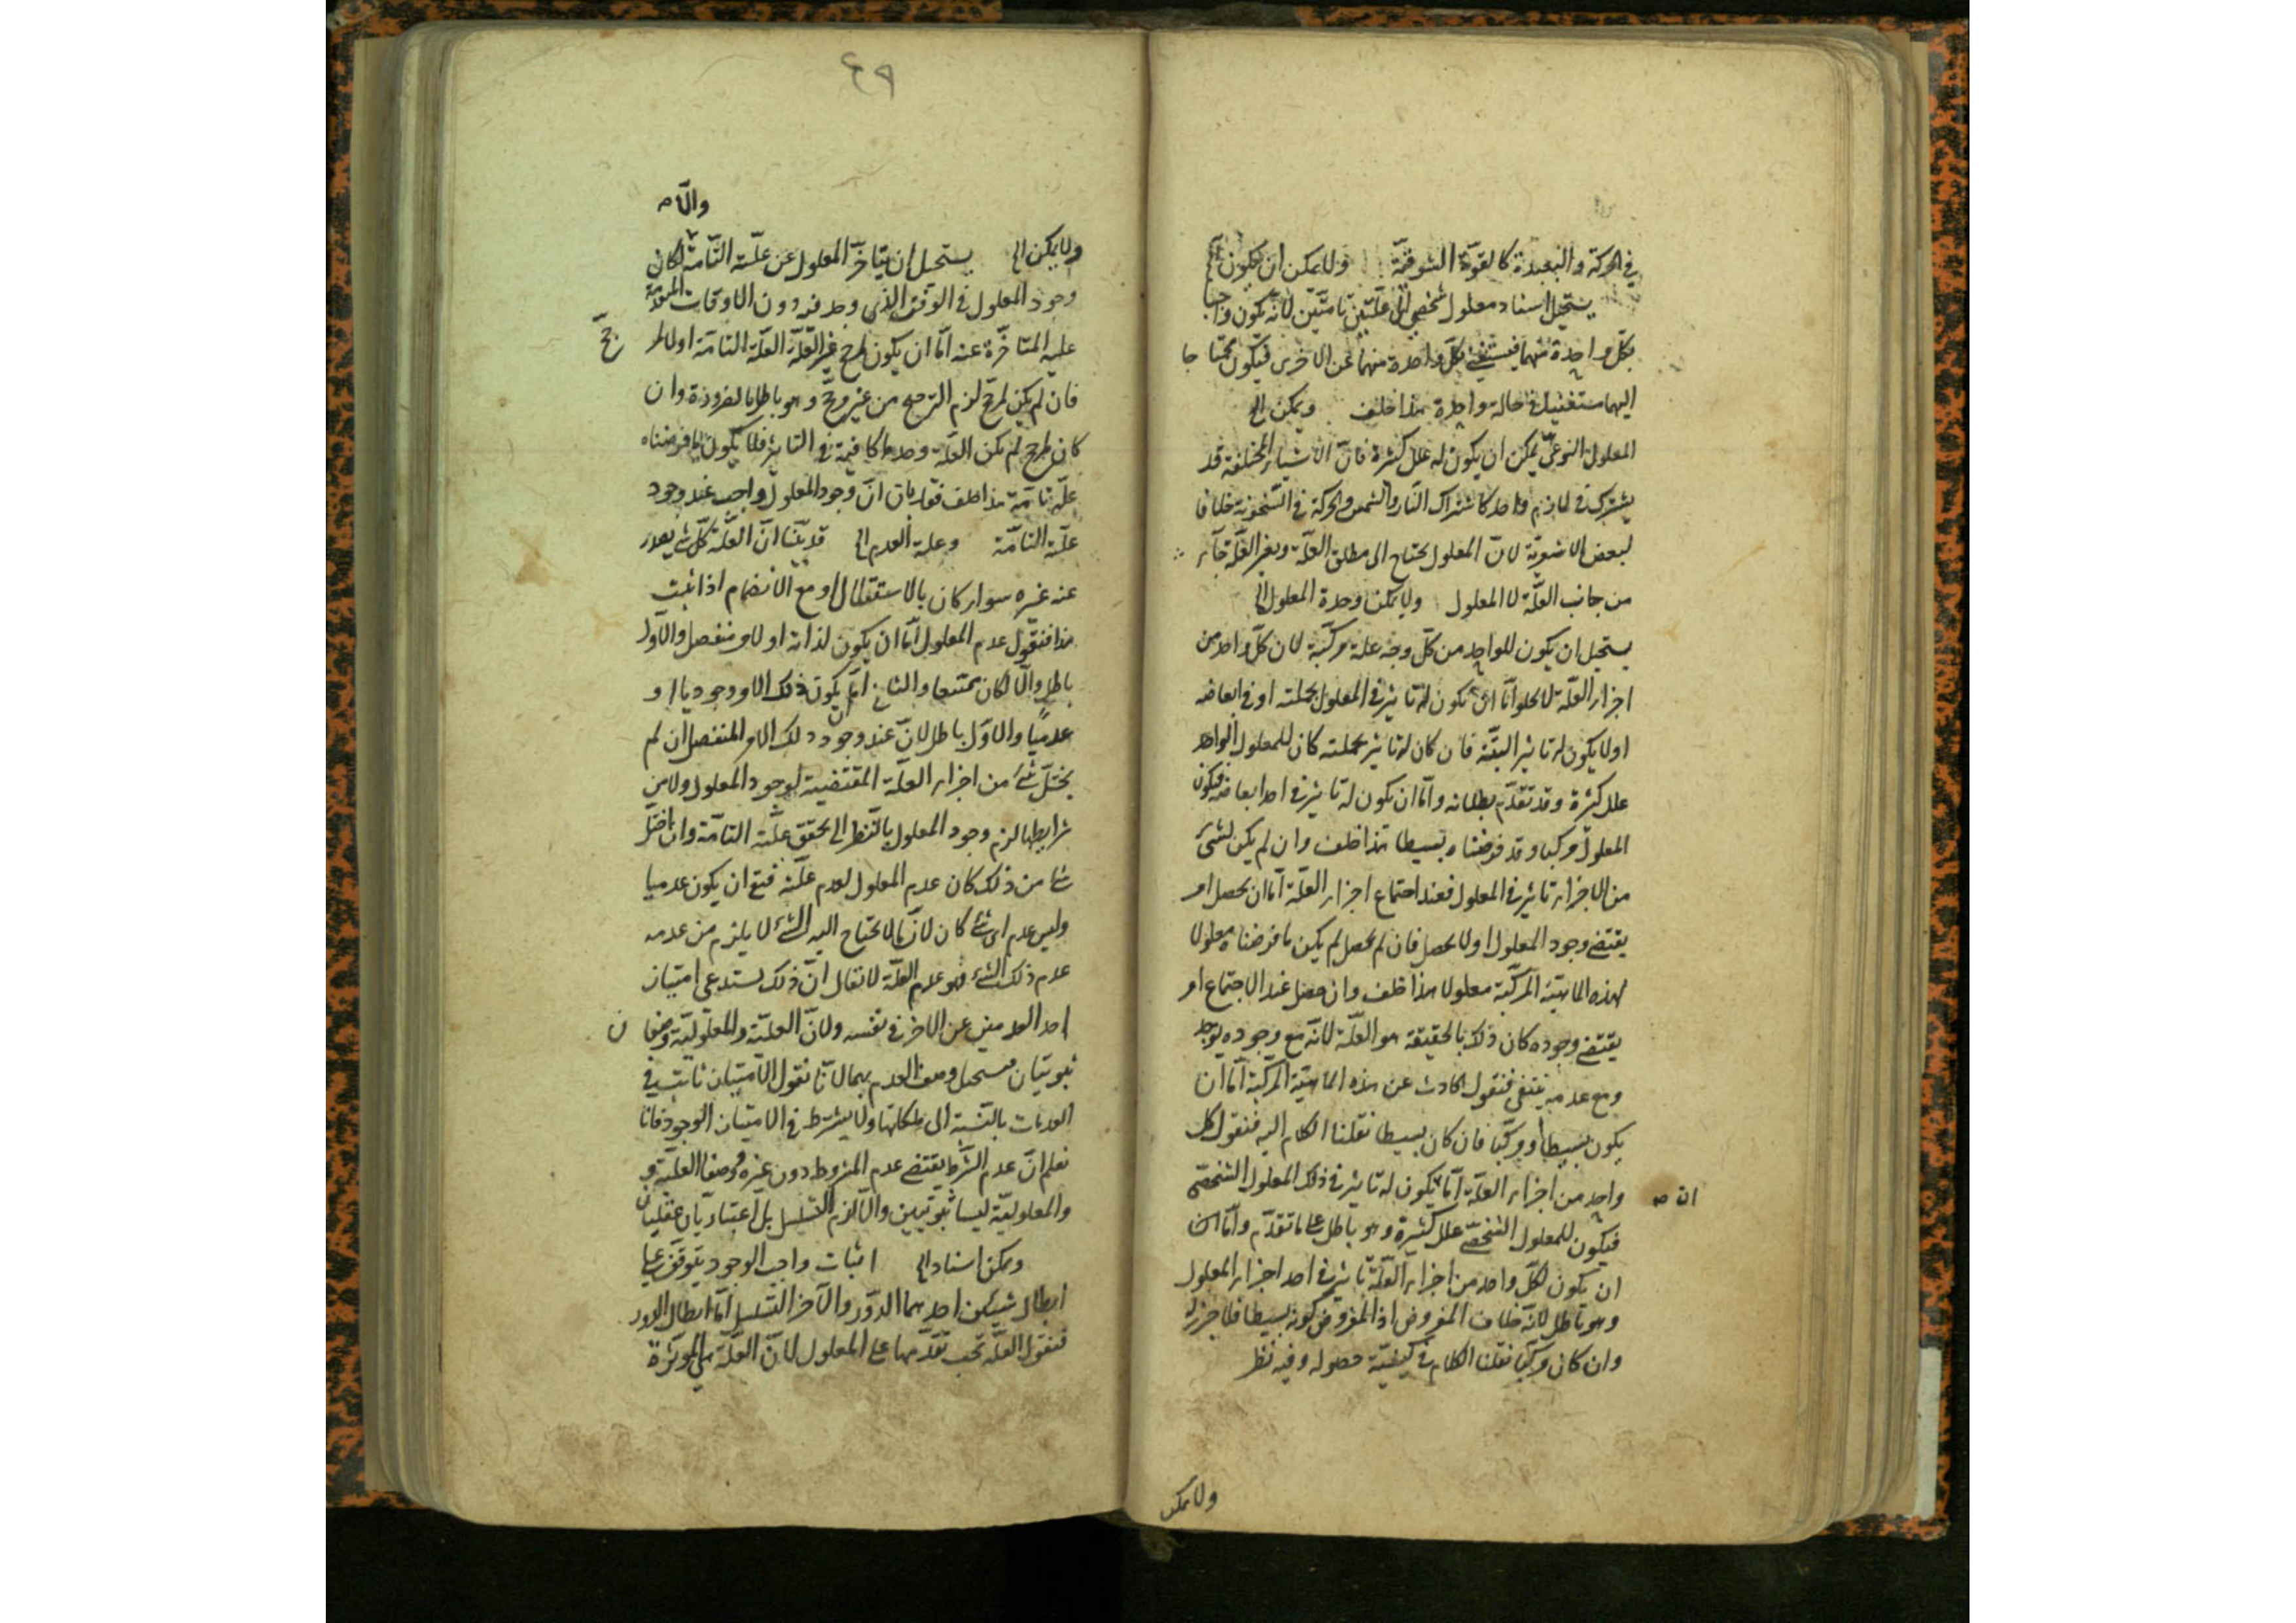 في الحركة والبعيدة كالقوة الشوقية ولا يمكن ان يكون الخ
يستحيل اسناد معلول شخصي الى علتين تامتين لانه يكون واجبا
بكل واحدة منهما فيستغني بكل واحدة منهما عن الاخرى فيكون محتا جا
اليهما مستغنيا في حالة واحدة هذا خلف ويمكن الخ
المعلول النوعي يمكن ان يكون له علل كثيرة فان الاشياء المختلفة قد
يشترك في لازم واحد كاشتراك النار والشمس والحركة في السخونة خلافا
لبعض الاشعرية لان المعلول يحتاج الى مطلق العلة وتعين العلة جاء
من جانب العلة لا المعلول ولا يمكن وحدة المعلول الخ
يستحيل ان يكون للواحد من كل وجه علة مركبة لان كل واحد من
اجزاء العلة لا يخلوا اما ان يكون له تاثير في المعلول بجملته او في ابعاضه
او لا يكون له تاثير البتة فان كان له تاثير بجملته كان للمعلول الواحد
علل كثيرة وقد تقدم بطلانه واما ان يكون له تاثير في احد ابعاضه فيكون
المعلول مركبا وقد فرضناه بسيطا هذا خلف وان لم يكن لشئ
من الاجزاء تاثير في المعلول فعند اجتماع اجزاء العلة اما ان يحصل امر
يقتضي وجود المعلول او لا يحصل فان لم يحصل لم يكن ما فرضناه معلولا
لهذه الماهية المركبة معلولا هذا خلف وان حصل عند الاجتماع امر
يقتضي وجوده كان ذلك بالحقيقة هو العلة لانه مع وجوده يوجد
ومع عدمه ينتفي فنقول الحادث عن هذه الماهية المركبة اما ان
يكون بسيطا او مركبا فان كان بسيطا نقلنا الكلام اليه فنقول كل
واحد من اجزاء العلة اما يكون له تاثير في ذلك المعلول الشخصي
ان صه
فيكون للمعلول الشخصي علل كثيرة وهو باطل على ما تقدم واما ان
ان يكون لكل واحد من اجزاء العلة تاثير في احد اجزاء المعلول
وهو باطل لانه خلاف المفروض اذ المفروض كونه بسيطا فلا جزء له
وان كان مركبا نقلنا الكلام في كيفية حصوله وفيه نظر
ولا يمكن
٤٩
والا صه
ولا يمكن الخ يستحيل ان يتاخر المعلول عن علته التامة لكان
وجود المعلول في الوقت الذي وجد فيه دون الاوقات المتقدمة
عليه المتاخرة عنه اما ان يكون لمرجح غير العلة العلة التامة او لا لمر
جح
فان لم يكن لمرجح لزم الترجيح من غير مرجح وهو باطل بالضرورة وان
كان لمرجح لم تكن العلة وحدها كافية في التاثير فلا يكون ما فرضناه
علة تامة هذا خلف فقد بان ان وجود المعلول واجب عند وجود
علته التامة وعلة العدم الخ قد بينا ان العلة كل شئ يصدر
عنه غيره سواء كان بالاستقلال او مع الانضمام اذا ثبت
هذا فنقول عدم المعلول اما ان يكون لذاته او لامر منفصل والاول
باطل والا لكان ممتنعا والثاني اما ان يكون ذلك الامر وجوديا او
عدميا والاول باطل لان عند وجود ذلك الامر المنفصل ان لم
يختل شئ من اجزاء العلة المقتضية لوجود المعلول ولا من
شرايطها لزم وجود المعلول بالنظر الى تحقق علته التامة وان اختل
شئ من ذلك كان عدم المعلول لعدم علته فبقي ان يكون عدميا
وليس عدم اي شئ كان لان ما لا يحتاج اليه الشئ لا يلزم من عدمه
عدم ذلك الشئ فهو عدم العلة لا يقال ان ذلك يستدعي امتياز
احد العدمين عن الاخر في نفسه ولان العلية والمعلولية وصفا ن
ثبوتيان فيستحيل وصف العدم بهما لانا نقول الامتياز ثابت في
العدمات بالنسبة الى ملكاتها ولا يشترط في الامتياز الوجود فانا
نعلم ان عدم الشرط يقتضي عدم المشروط دون غيره ووصفا العلية و
والمعلولية ليسا ثبوتيين والا لزم التسلسل بل اعتباريان عقليان
ويمكن اسناده الخ اثبات واجب الوجود يتوقف على
ابطال شيئين احدهما الدور والاخر التسلسل اما ابطال الدور
فنقول العلة تجب تقدمها على المعلول لان العلة هي الموثرة